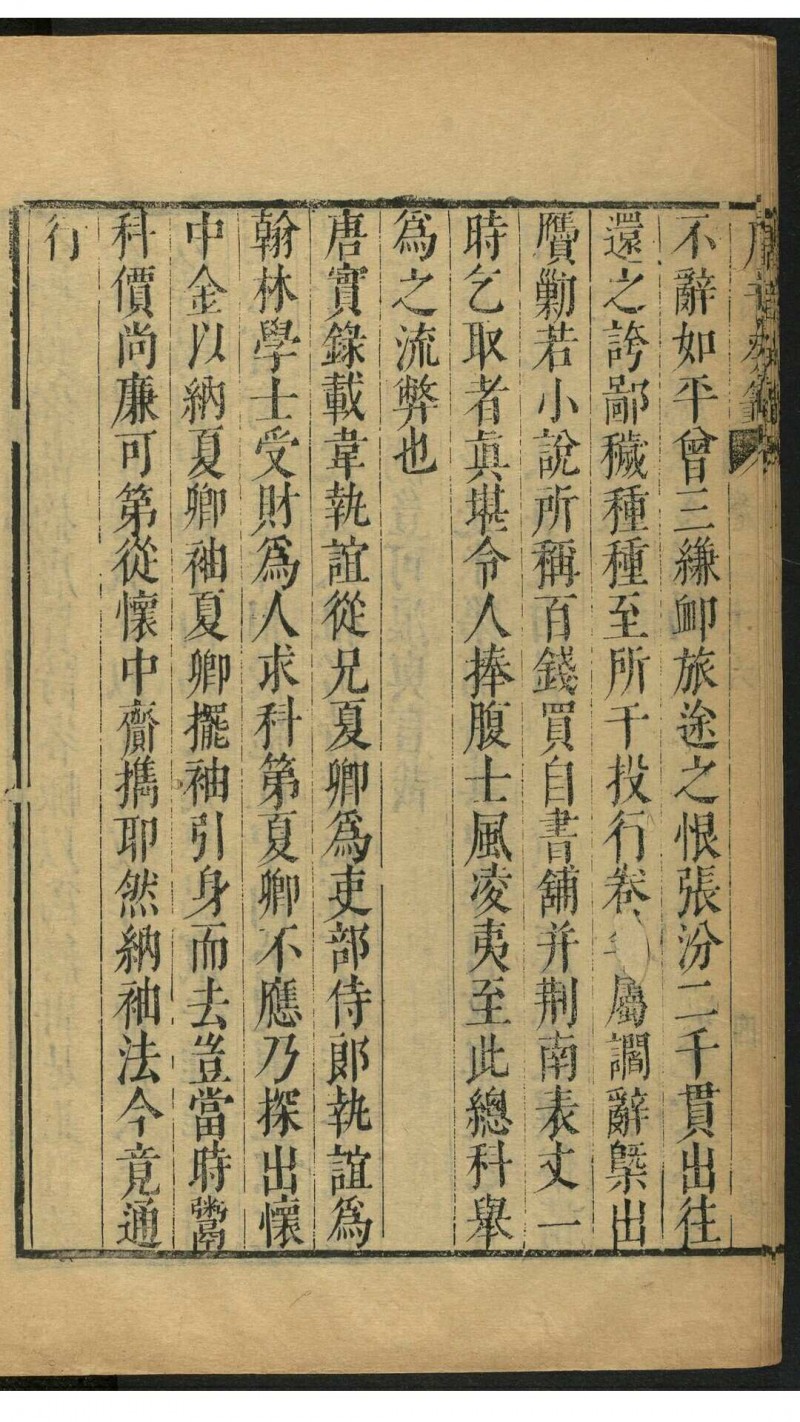 不辭如平曾三縑卹旅途之恨張汾二千貫出往
還之誇鄙穢種種至所干投行卷屬謭辭槩出
贗勦若小說所稱百錢買自書舖并荆南表丈一
時乞取者真堪令人捧腹士風凌夷至此總科舉
為之流弊也
唐實錄載韋執誼從兄夏卿爲吏部侍郎執誼爲
翰林學士受財爲人求科第夏卿不應乃探出懷
中金以納夏卿袖夏卿擺袖引身而去豈當時鬻
科價尚廉可第從懷中齎擕耶然納袖法今竟通
行